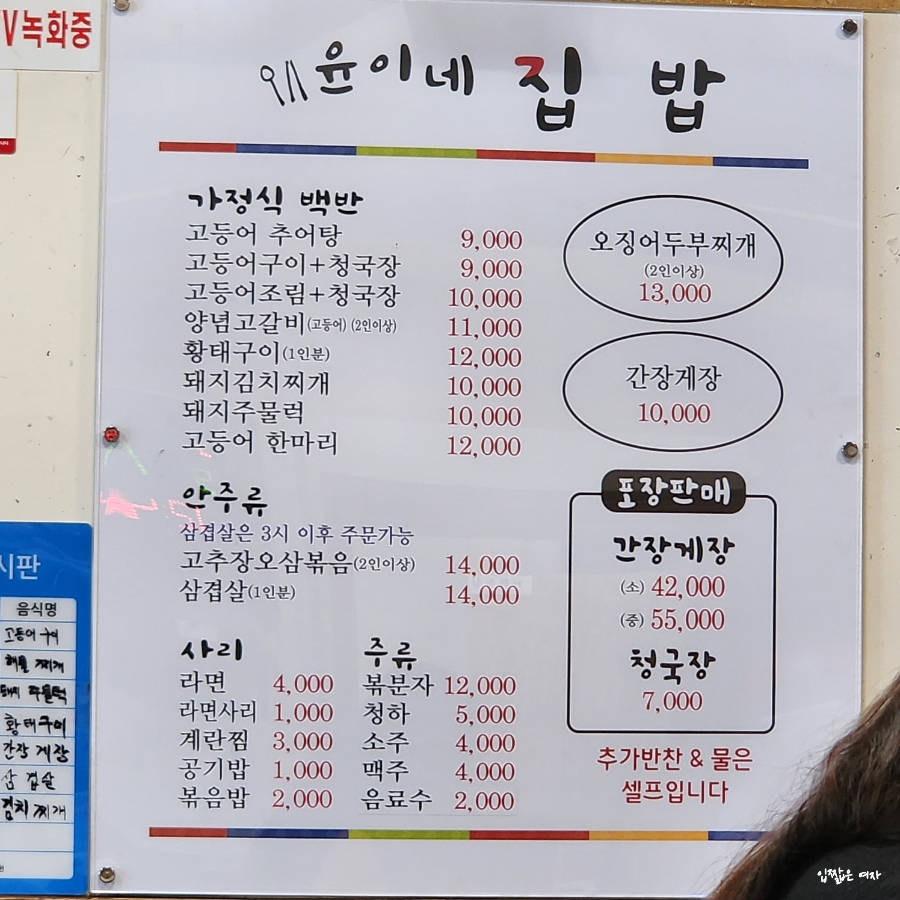 V녹화중
윤이네 집밥
가정식 백반
고등어 추어탕 9,000
고등어구이+청국장 9,000
고등어조림+청국장 10,000
양념고갈비(고등어)(2인이상) 11,000
황태구이(1인분) 12,000
돼지김치찌개 10,000
돼지주물럭 10,000
고등어 한마리 12,000
오징어두부찌개
(2인이상)
13,000
간장게장
10,000
안주류
삼겹살은 3시 이후 주문가능
고추장오삼볶음(2인이상) 14,000
삼겹살(1인분) 14,000
사리
라면 4,000
라면사리 1,000
계란찜 3,000
공기밥 1,000
볶음밥 2,000
주류
복분자 12,000
청하 5,000
소주 4,000
맥주 4,000
음료수 2,000
포장판매
간장게장
(소) 42,000
(중) 55,000
청국장
7,000
추가반찬 & 물은
셀프입니다
시판
음식명
고등어 구이
해물 찌개
돼지 주물럭
황태구이
간장 게장
삼겹살
김치 찌개
입짧은 여자